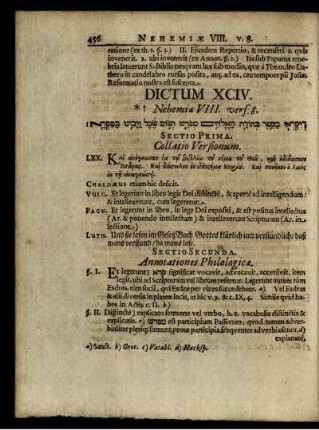 456 NEHEMIÆ VIII. v. 8.
ratione (ex th. 1. §. 1.) II. Ejusdem Repertio, & recensiri 1. quis
invenerit. 2. ubi invenerit (ex Annot. §. 1.) Ita sub Papatus tene-
bris latuerat S. Biblia tanquam lux sub modio, quæ à Theandro Lu-
thero in candelabro rursus posita, atq; ad ea, contempore pii Josiæ,
Reformatio nostra est suscepta.
DICTUM XCIV.
*† Nehemiæ VIII. vers. 8.
ויקראו בספר בתורת האלהים מפרש ושום שכל ויבינו במקרא
SECTIO PRIMA.
Collatio Versionum.
LXX. Καὶ ἀνέγνωσαν ἐν τῷ βιβλίῳ τοῦ νόμου τοῦ Θεοῦ,
ἐν τῇ ἀναγνώσει.
CHALDÆUS etiam hic deficit.
VULG. Et legerunt in libro legis Dei distincte, & aperte ad intelligendum:
& intellexerunt, cum legeretur.
PAGN. Et legerunt in libro, in lege Dei expositi, & est positus intellectus
(Ar. & ponendo intellectum) & intellexerunt Scripturam (Ar. in
lectione.)
LUTH. Und sie lasen im Gesetz Buch Gottes klärlich und verständlich/ daß
mans verstund/ da mans las.
SECTIO SECUNDA.
Annotationes Philologicæ.
§. I. Et legerunt) קרא significat vocavit, advocavit, accersivit, item
legit, ubi ad Scripturam vel librum refertur. Legerunt autem tum
Esdras, tum socii, qui Esdræ per vices succedebant. a) Vel Esdras
& alii diversis in platea locis, ut hîc v. 9. & c. IX, 4. Simile quid ha-
bes in Actis c. II. b)
§. II. Distincte) explicato sermone vel verbo, h. e. vocabulis distinctis &
explicatis. c) מפרש est participium Passivum, quod tamen adver-
bialiter pleriq; sumunt, prout participia frequenter adverbiascunt. d)
explanatè,
a) Sanct. b) Grot. c) Vatabl. d) Hacksp.